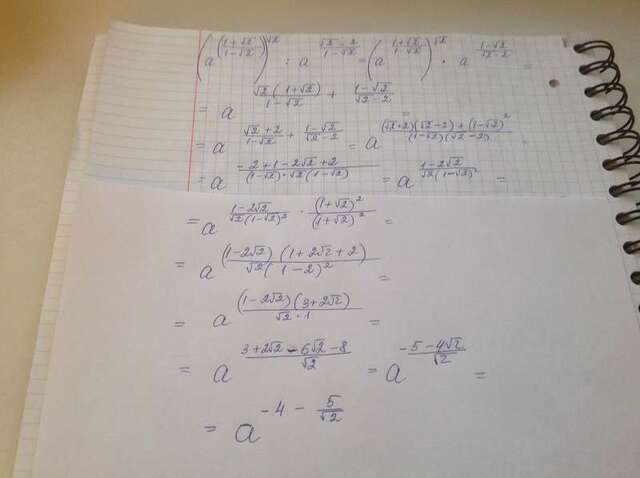 (a^((1+√2)/(1-√2)))^√2 : a^((√2-2)/(1-√2)) = (a^((1+√2)/(1-√2)))^√2 · a^((1-√2)/(√2-2)) =
= a^(√2(1+√2)/(1-√2) + (1-√2)/(√2-2)) =
= a^((√2+2)/(1-√2) + (1-√2)/(√2-2)) = a^(((√2+2)(√2-2)+(1-√2)^2)/((1-√2)(√2-2))) =
= a^((-2+1-2√2+2)/((1-√2)·√2(1-√2))) = a^((1-2√2)/(√2(1-√2)^2)) =
= a^((1-2√2)/(√2(1-√2)^2) · (1+√2)^2/(1+√2)^2) =
= a^((1-2√2)(1+2√2+2)/(√2(1-2)^2)) =
= a^((1-2√2)(3+2√2)/(√2·1)) =
= a^((3+2√2-6√2-8)/√2) = a^((-5-4√2)/√2) =
= a^(-4 - 5/√2)